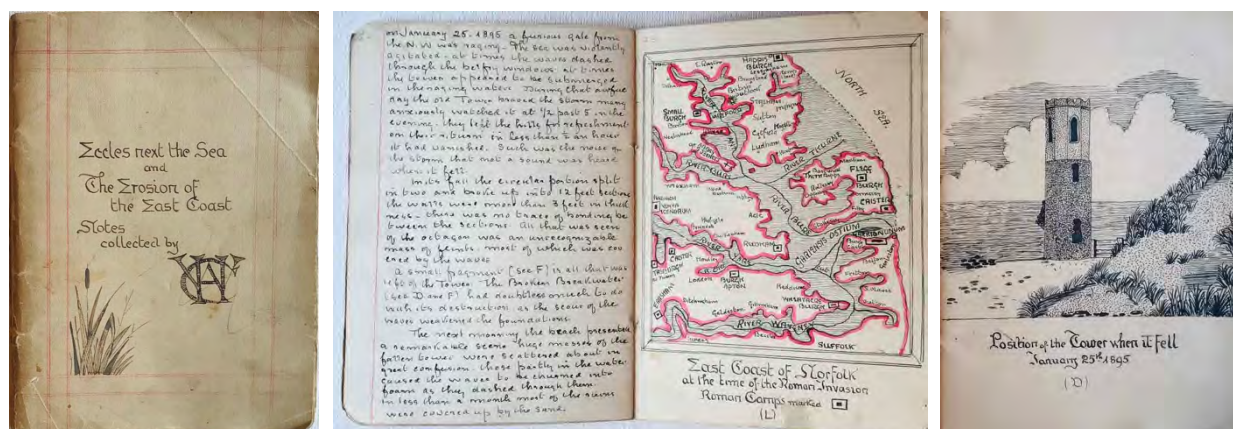 Eccles next the Sea
and
The Erosion of
the East Coast
Notes
collected by
on January 25. 1895 a furious gale from
the N.W was raging. The sea was violently
agitated. at times the waves dashed
through the belfry windows at times
the tower appeared to be submerged
in the raging water. During that awful
day the old Tower braved the storm many
anxiously watched it at ½ past 5 in the
evening. they left the hills for refreshment
on their return in less than ½ an hour
it had vanished. Such was the noise of
the storm that not a sound was heard
when it fell.
In its fall the circular portion split
in two and broke up into 12 feet sections
the walls were more than 3 feet in thick
ness. there was no trace of bonding be
tween the sections. All that was seen
of the octagon was an unrecognizable
mass of flints. most of which was cov
ered by the waves
A small fragment [see F] is all that was
left of the Tower. The Broken Breakwater
(see D and F) had doubtless much to do
with its destruction as the scour of the
waves weakened the foundations.
The next morning the beach presented
a remarkable scene huge masses of the
fallen tower were scattered about in
great confusion. those partly in the water
caused the waves to be churned into
foam as they dashed through them
in less than a month most of the ruins
were covered up by the sand.
NORTH SEA.
SMALL
BURGH
Sutton
Ludham
RIVER THURNE
RIVER BURE
FLEGG
BURGH
CAISTER
Acle
REEDHAM
GARIENSIS OSTIUM
RIVER YARE
CASTER
BURGH
APTON
Loddon
RIVER WAVENEY
SUFFOLK
East Coast of Norfolk
at the time of the Roman Invasion
Roman Camps marked
(L)
Position of the Tower when it fell
January 25th 1895
(D)